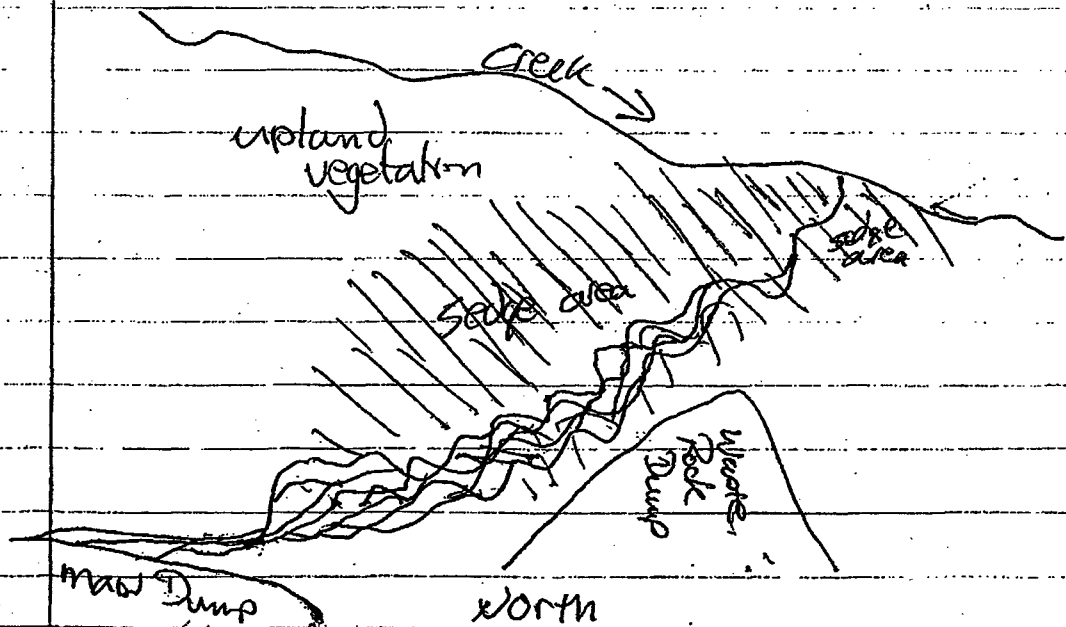 Creek
upland
vegetation
sedge
area
Sedge area
Waste
Rock
Dump
Main Dump
North